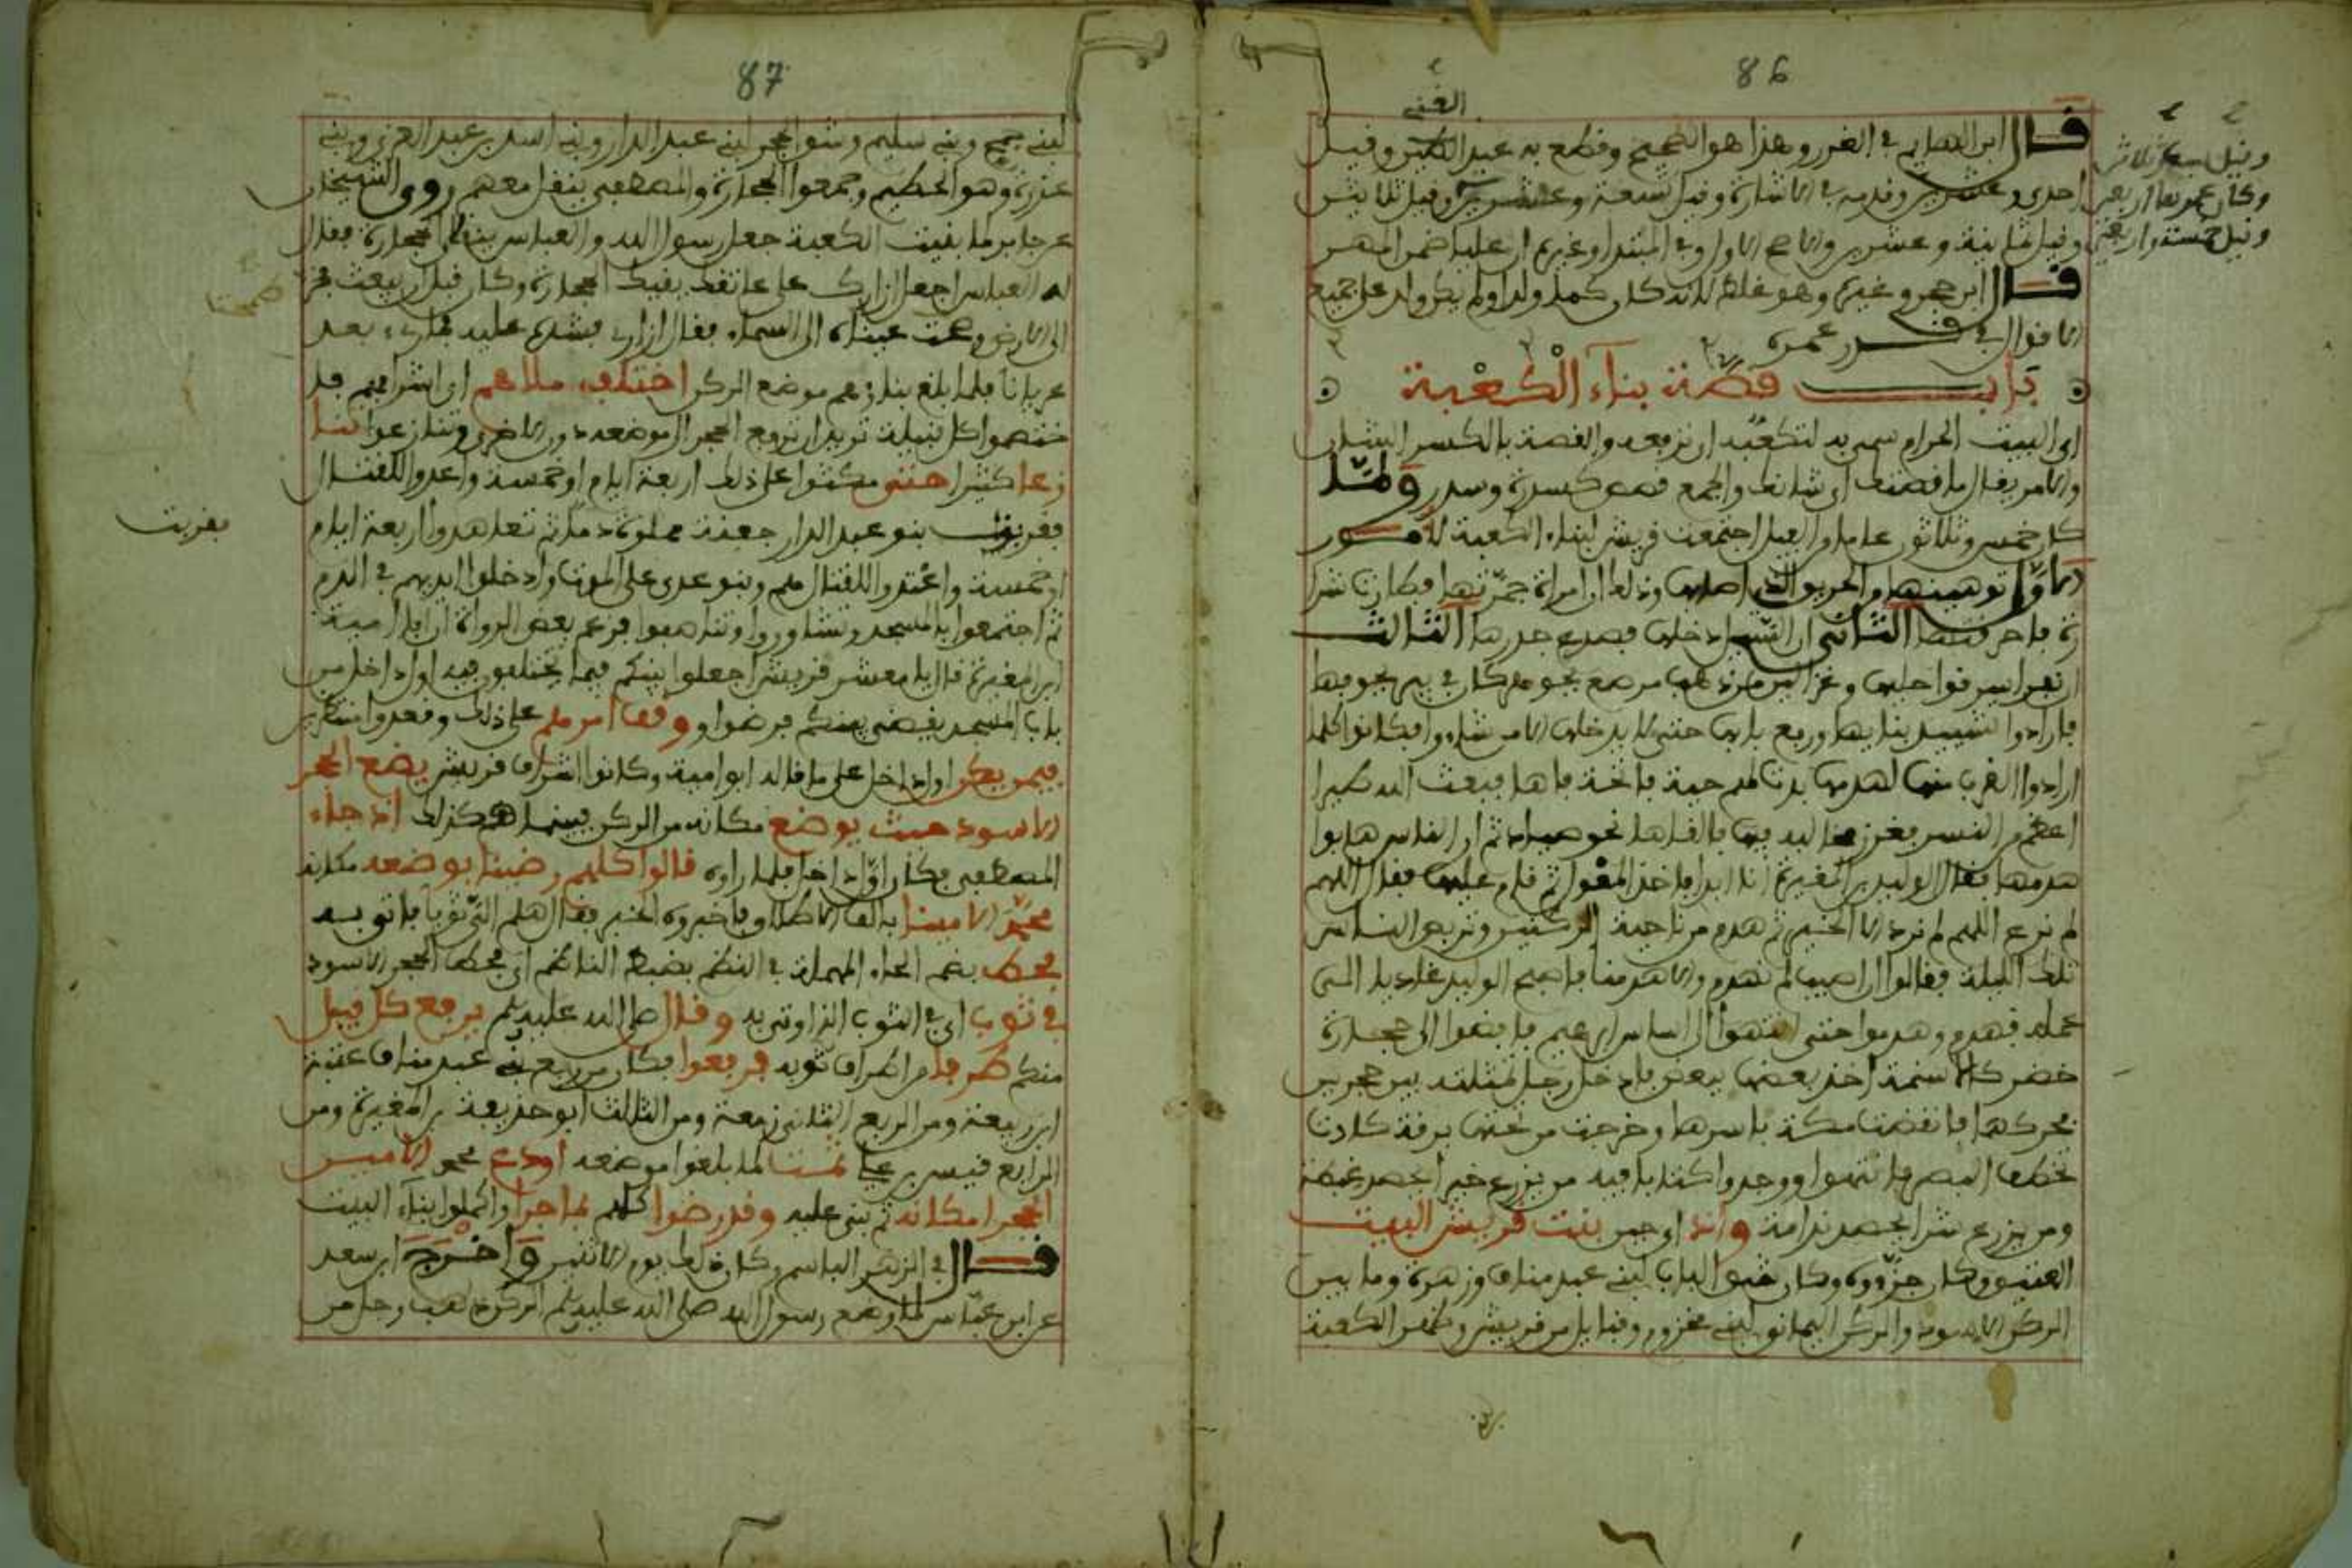 86
الغني
قال ابن العماد في الغرر وهذا هو الصحيح وقطع به عبد الغني وقيل
احدى وعشرين وقدمه في الاشارة وقيل تسعة وعشرين وقيل ثلاثين
وقيل ثمانية وعشرين والاصح الاول وفي المبتدا وغيره ان عليا ضمن المهر
قال ابن حجر وغيره وهو غلط لانه كان طفلا ولدا ولم يكن ولد على جميع
الاقوال في قدر عمره
وقيل سبع وثلاثين
وكان عمرها اربعين
وقيل خمسة واربعين
باب قصة بناء الكعبة
اي البيت الحرام سمي به لتكعبه اي تربعه والقصة بالكسر الشان
والامر يقال ما قصتك اي شانك والجمع قصص كسدرة وسدر ولما
كان خمس وثلاثون عاما والفيل اجتمعت قريش لبناء الكعبة لامور
الاول توهينها من الحريق الذي اصابها وذلك ان امراة جمرتها فطارت شرا
رة فاحرقتها الثاني ان السيل دخلها فصدع جدرها الثالث
ان نفرا سرقوا حليها وغزالين من ذهب مرصع بجوهر كان في بير بجوفها
فارادوا تشييد بنايها ورفع بابها حتى لا يدخلها الا من شاءوا فكانوا كلما
ارادوا القرب منها لهدمها بدت لهم حية فاتحة فاها فبعث الله طيرا
اعظم من النسر فغرز مخالبه فيها فالقاها نحو جياد ثم ان الناس هابوا
هدمها فقال الوليد بن المغيرة انا ابدا فاخذ المعول ثم قام عليها فقال اللهم
لم نرع اللهم لم نرد الا الخير ثم هدم من ناحية الركنين وتربص الناس
تلك الليلة وقالوا ان اصيب لم نهدم والا هدمنا فاصبح الوليد غاديا الى
عمله فهدم وهدموا حتى انتهوا الى اساس ابراهيم فافضوا الى حجارة
خضر كالاسنمة اخذ بعضها ببعض فادخل رجل عتلته بين حجرين
فحركهما فانتقضت مكة باسرها وخرجت من تحتها برقة كادت
تخطف البصر فانتهوا ووجدوا كتابا فيه من يزرع خيرا يحصد غبطة
ومن يزرع شرا يحصد ندامة واذ اي حين بنت قريش البيت
العتيق وكان جزءوه وكان شق الباب لبني عبد مناف وزهرة وما بين
الركن الاسود والركن اليماني لبني مخزوم وقبايل من قريش وظهر الكعبة
87
لبني جمح وبني سليم وشق الحجر لبني عبد الدار وبني اسد بن عبد العزى وبني
عدي وهو الحطيم وجمعوا الحجارة والمصطفى ينقل معهم روى الشيخان
عن جابر لما بنيت الكعبة جعل رسول الله والعباس ينقلان الحجارة فقال
له العباس اجعل ازارك على عاتقك يقيك الحجارة وكان قبل ان يبعث فخر
الى الارض وطمحت عيناه الى السماء فقال ازاري فشده عليه فما رءي بعد
عريانا فلما بلغ بناؤهم موضع الركن اختلف ملاهم اي اشرافهم فا
ختصموا كل قبيلة تريد ان ترفع الحجر الى موضعه دون الاخرى وتنازعوا تنا
زعا كثيرا حتى مكثوا على ذلك اربعة ايام او خمسة واعدوا للقتال
فقربت بنو عبد الدار جفنة مملوة دما ثم تعاهدوا اربعة ايام
بقربت
او خمسة واعتدوا للقتال هم وبنو عدي على الموت وادخلوا ايديهم في الدم
ثم اجتمعوا بالمسجد وتشاوروا وتناصفوا فزعم بعض الرواة ان ابا امية
ابن المغيرة قال يا معشر قريش اجعلوا بينكم فيما تختلفون فيه اول داخل من
باب المسجد يقضي بينكم فرضوا ووقف امرهم على ذلك وقعدوا منتظرين
فيمن يكن اول داخل على ما قاله ابو امية وكانوا اشراف قريش يضع الحجر
الاسود حيث يوضع مكانه من الركن فبينما هم كذلك اذ جاء
المصطفى فكان اول داخل فلما راوه قالوا كلهم رضينا بوضعه مكانه
محمد الامينا بالف الاطلاق فاخبروه الخبر فقال هلم الي ثوبا فاتي به
فحط بضم الحاء المهملة في النظم بضبط الناظم اي فحط الحجر الاسود
في ثوب اي في الثوب الذي اوتي به وقال صلى الله عليه وسلم يرفع كل قبيل
منكم طرفا من اطراف ثوبه فرفعوا فكان من ربع بني عبد مناف عتبة
ابن ربيعة ومن الربع الثاني زمعة ومن الثالث ابو حذيفة بن المغيرة ومن
الرابع قيس بن عدي ثمت لما بلغوا موضعه اودع محمد الامين
الحجر مكانه ثم بنى عليه وقد رضوا كلهم بما جرا واكملوا بناء البيت
قال في الزهر الباسم وكان ذلك يوم الاثنين واخرج ابن سعد
عن ابن عباس لما وضع رسول الله صلى الله عليه وسلم الركن ذهب رجل من